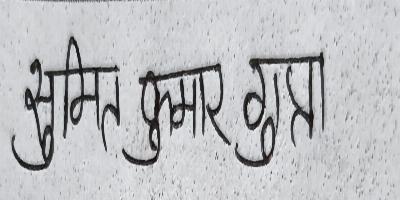 सुमित कुमार गुप्ता